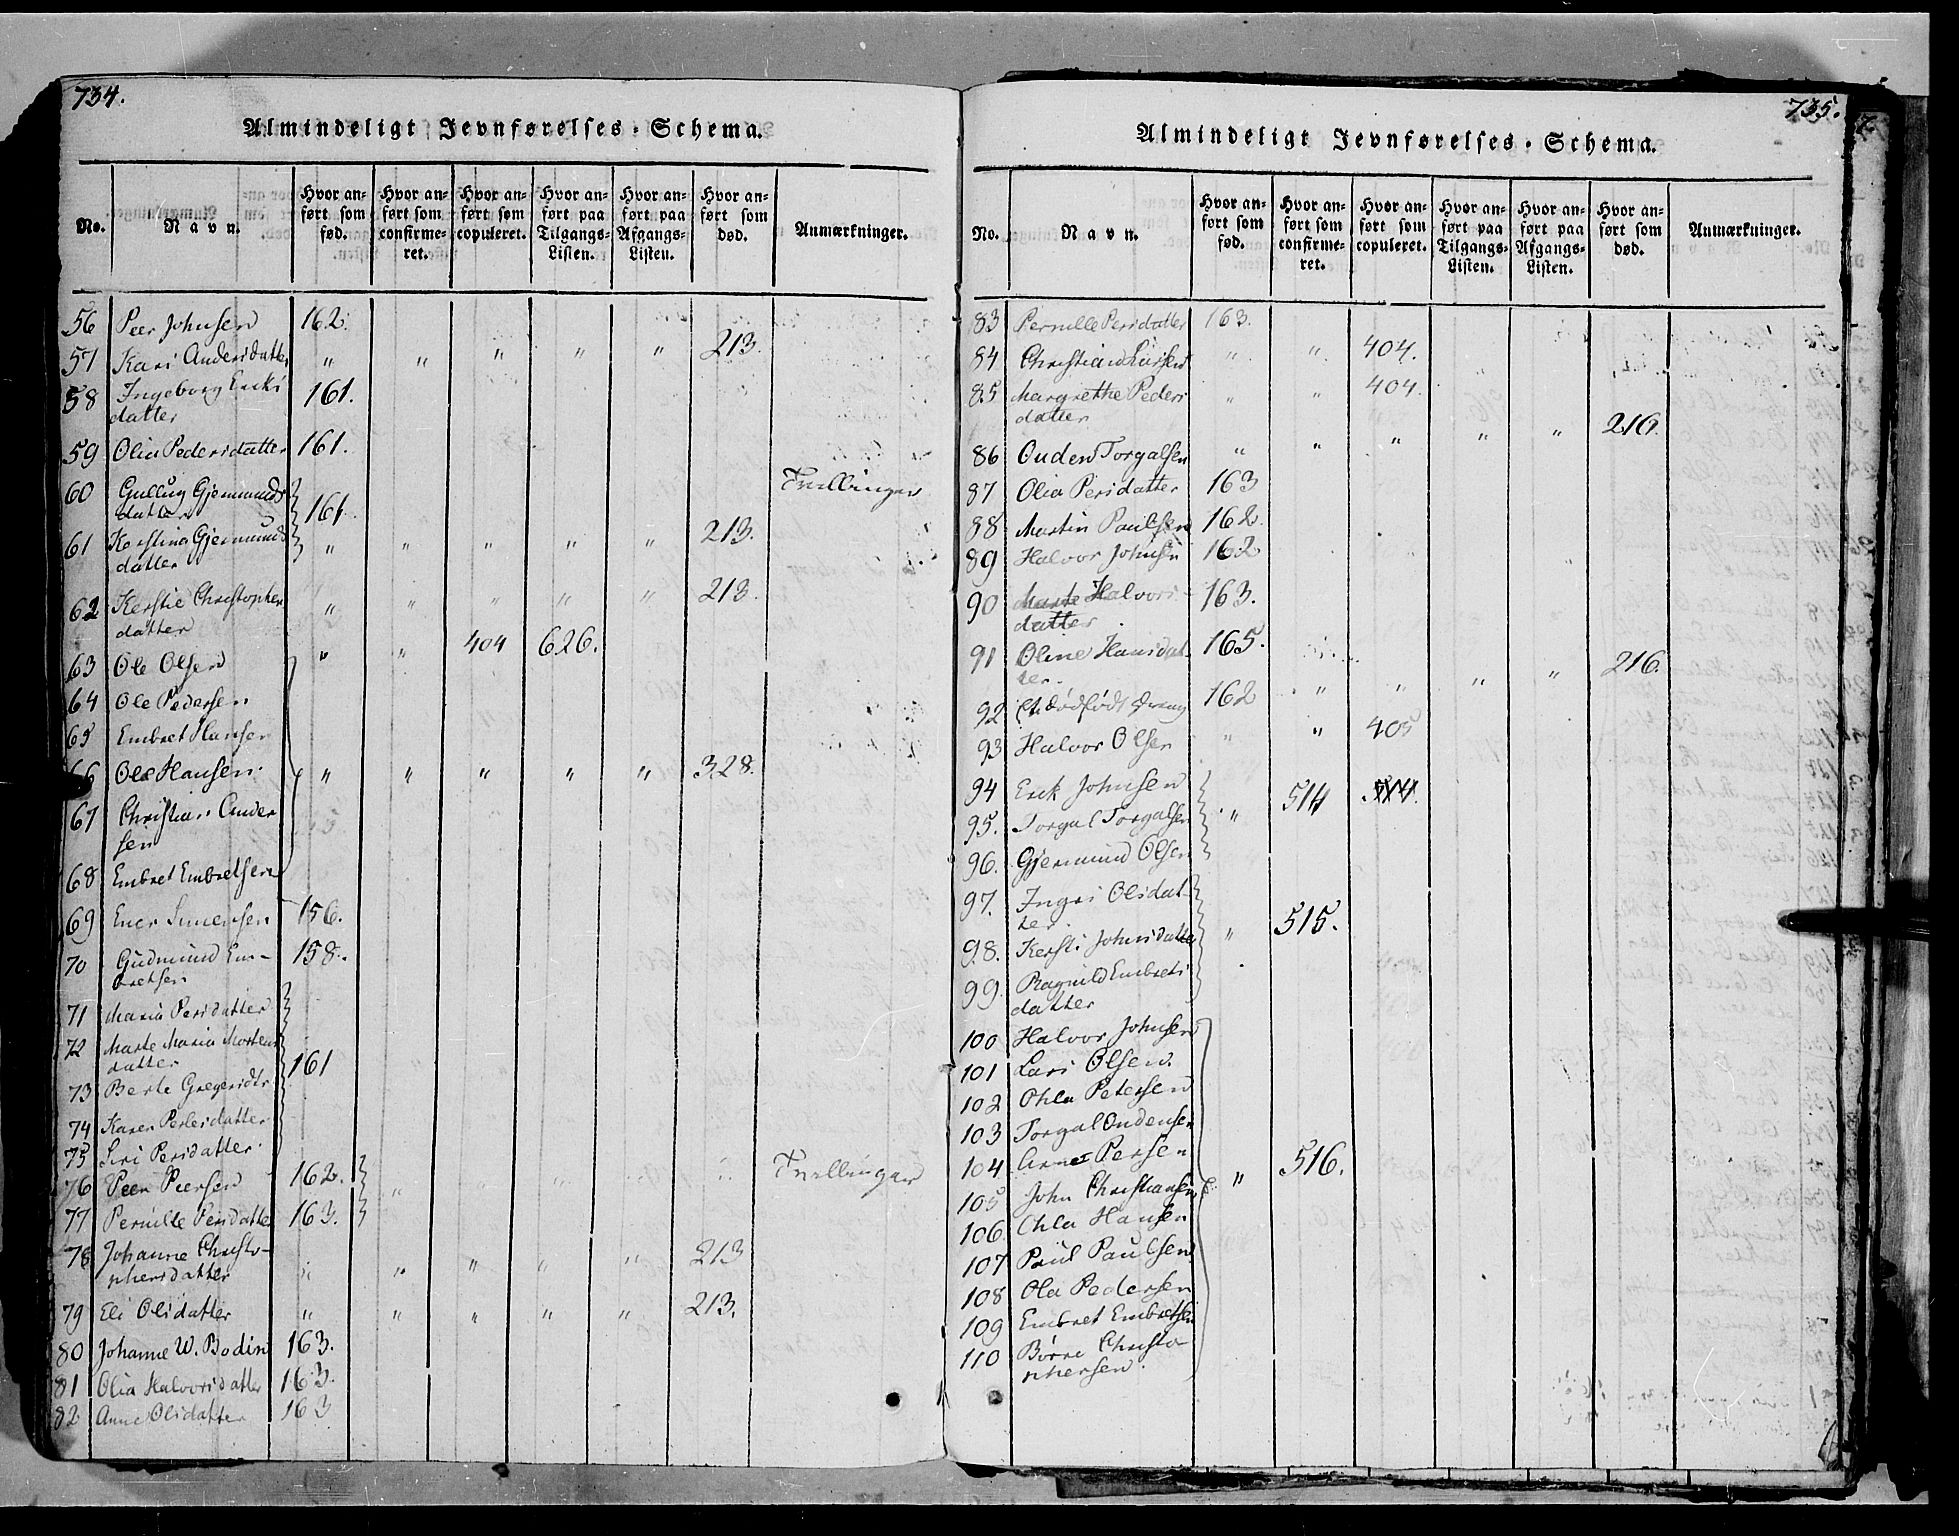 734.
Almindeligt Jevnførelses-Schema.
No. Navn. Hvor anført som fød. Hvor anført som confirmeret. Hvor anført som copuleret. Hvor anført paa Tilgangs-Listen. Hvor anført paa Afgangs-Listen. Hvor anført som død. Anmærkninger.
56 Peer Johnsen 162.
57 Kari Andersdatter " " " " " 213.
58 Ingeborg Eriks
datter 161.
59 Olia Pedersdatter 161.
60 Gullug Gjermunds
datter 161. Tvillinger
61 Kerstina Gjermunds
datter " " " " " 213.
62 Kerstie Christophers
datter " " " " " 213.
63 Ole Olsen " " 404 626.
64 Ole Pedersen
65 Embret Hansen
66 Ole Hansen. " " " " " 328.
67 Christian Ander
sen
68 Embret Embretsen
69 Ener Simensen 156.
70 Gudmund Em-
bretsen 158.
71 Maria Persdatter
72 Marte Maria Mortens
datter 161
73 Berte Gregersdtr
74 Karen Pedersdatter
75 Siri Persdatter
76 Peer Peersen 162. Tvillinger
77 Pernille Persdatter 163.
78 Johanne Christo-
phersdatter " " " " " 213
79 Eli Olsdatter " " " " " 213.
80 Johanne W. Bodin 163.
81 Olia Halvorsdatter 163.
82 Anne Olsdatter 163
735.
Almindeligt Jevnførelses-Schema.
No. Navn. Hvor anført som fød. Hvor anført som confirmeret. Hvor anført som copuleret. Hvor anført paa Tilgangs-Listen. Hvor anført paa Afgangs-Listen. Hvor anført som død. Anmærkninger.
83 Pernille Persdatter 163.
84 Christian Larsen " " 404.
85 Margrethe Peders
datter " " 404.
86 Ouden Torgalsen " " " " " 216.
87 Olia Persdatter 163
88 Martin Paulsen 162.
89 Halvor Johnsen 162
90 Marte Halvors-
datter. 163.
91 Oline Hansdat
ter. 165.
92 Et dødfødt Dreng 162 " " " " 216.
93 Halvor Olsen " " 405
94 Erek Johnsen
95. Torgal Torgalsen " 514 514.
96. Gjermund Olsen
97. Ingri Olsdat-
ter.
98. Kersti Johnsdatter " 515.
99. Ragnild Embrets
datter
100 Halvor Johnsen
101 Lars Olsen.
102 Ohla Petersen
103 Torgal Oudensen
104 Arne Persen
105 John Christiansen " 516.
106. Ohla Hansen
107 Paul Paulsen
108 Ola Pedersen
109 Embret Embretsen
110 Børre Christo
phersen.